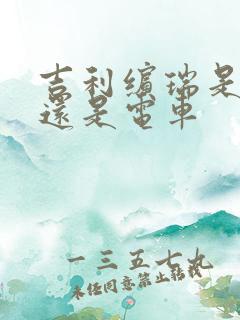 吉利缤瑞是
還是電車
一三五七九
未经同意禁止转载